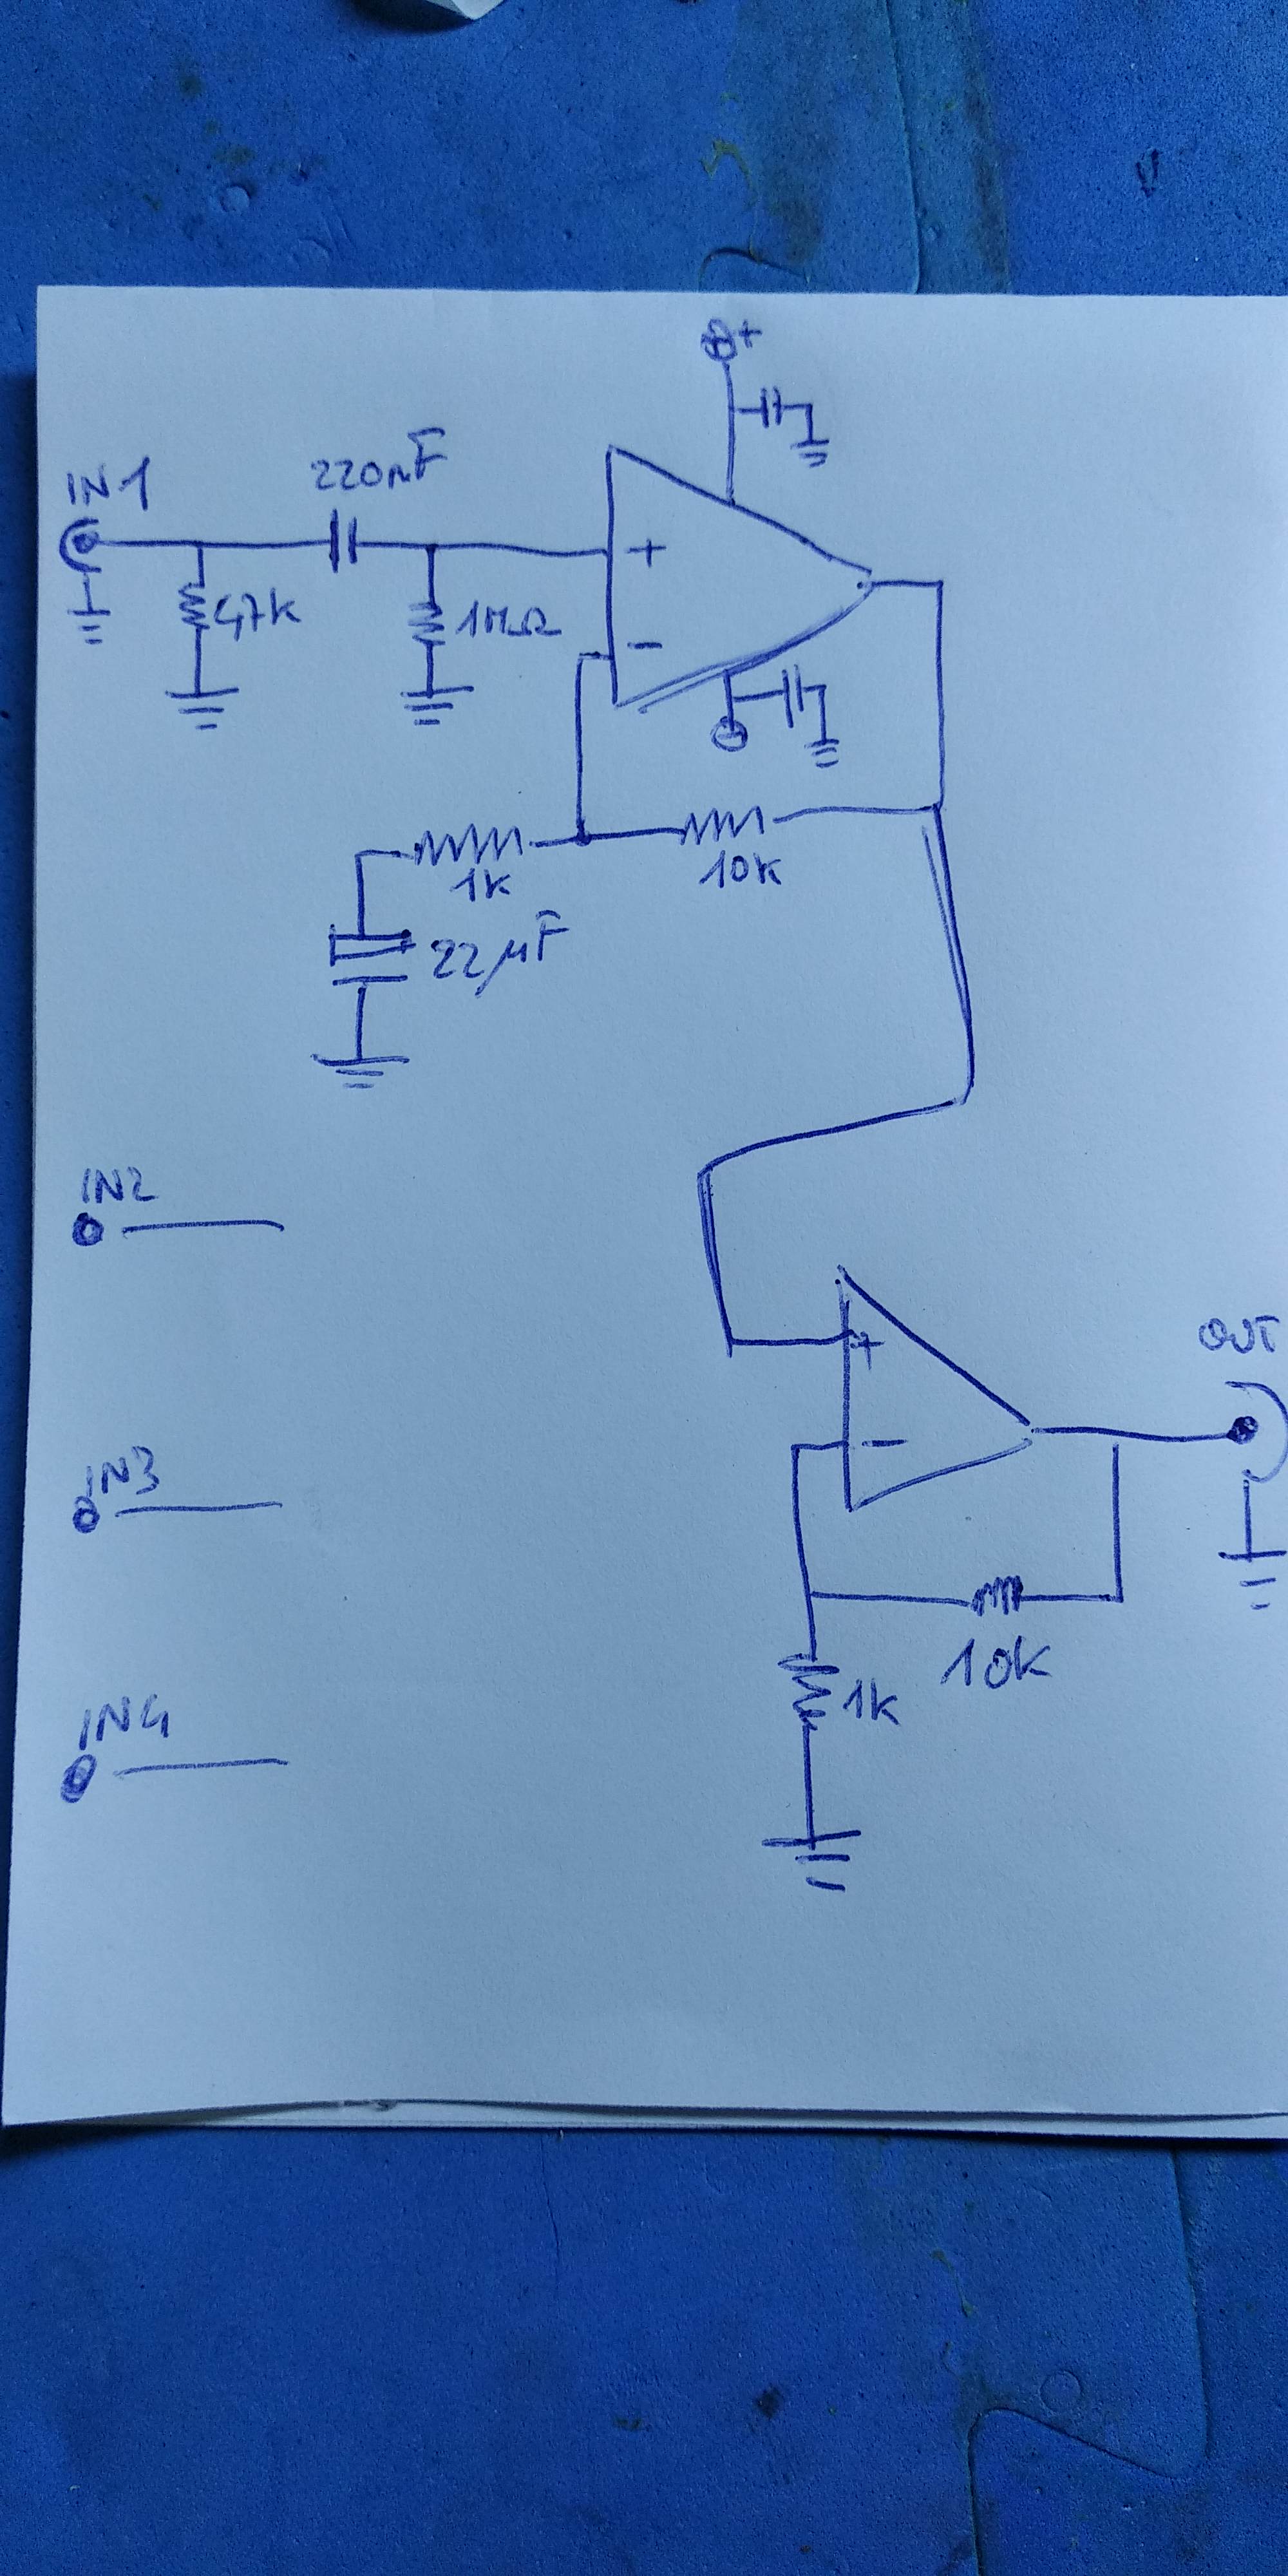 +
IN1
220nF
+
47k
1MΩ
-
1k
10k
22µF
IN2
+
OUT
-
IN3
10k
1k
IN4